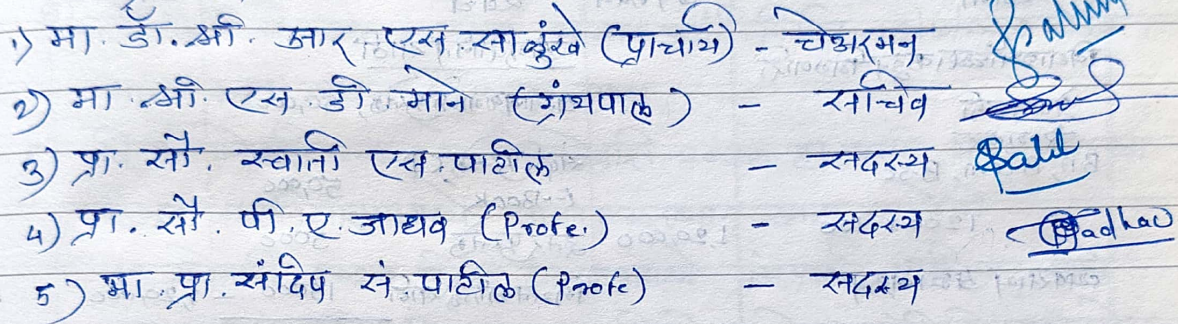 1) मा. डॉ. श्री. आर एस साळुंखे (प्राचार्य) - चेअरमन
2) मा. श्री. एस. डी. माने (ग्रंथपाल) - सचिव
3) प्रा. सौ. स्वाती एस. पाटील - सदस्य Patil
4) प्रा. सौ. पी. ए. जाधव (Profe.) - सदस्य Jadhav
5) मा. प्रा. संदिप सं पाटील (Profe) - सदस्य